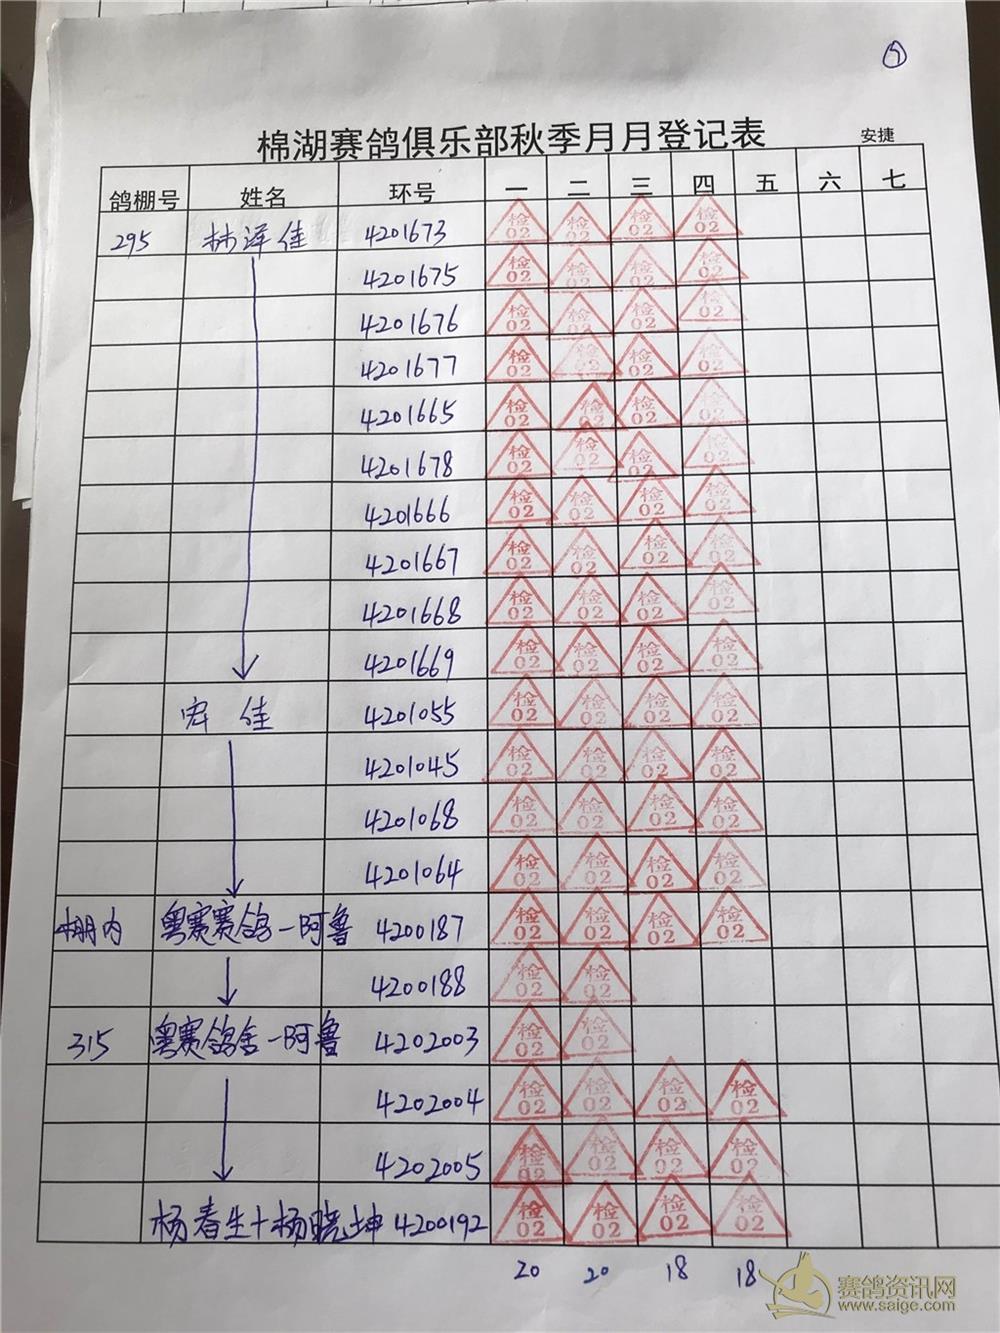 5
棉湖赛鸽俱乐部秋季月月登记表 安捷
鸽棚号 姓名 环号 一 二 三 四 五 六 七
295 林泽佳 4201673 检02 检02 检02 检02
4201675 检02 检02 检02 检02
4201676 检02 检02 检02 检02
4201677 检02 检02 检02 检02
4201665 检02 检02 检02 检02
4201678 检02 检02 检02 检02
4201666 检02 检02 检02 检02
4201667 检02 检02 检02 检02
4201668 检02 检02 检02 检02
4201669 检02 检02 检02 检02
宏佳 4201055 检02 检02 检02 检02
4201045 检02 检02 检02 检02
4201068 检02 检02 检02 检02
4201064 检02 检02 检02 检02
棚内 粤赛赛鸽一阿鲁 4200187 检02 检02 检02 检02
4200188 检02 检02
315 粤赛鸽舍一阿鲁 4202003 检02 检02
4202004 检02 检02 检02 检02
4202005 检02 检02 检02 检02
杨春生+杨晓坤 4200192 检02 检02 检02 检02
20 20 18 18
赛鸽资讯网
www.saige.com